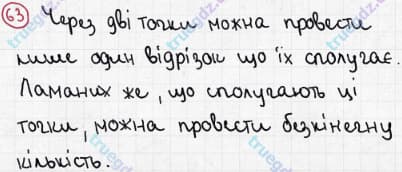 63 Через дві точки можна провести
лише один відрізок що їх сполучає.
Ламаних же, що сполучають ці
точки, можна провести безкінечну
кількість.